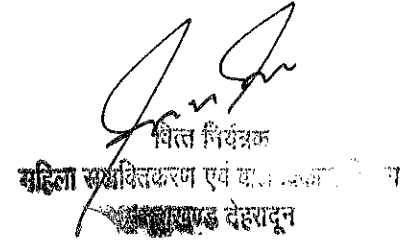 वित्त नियंत्रक
महिला सशक्तिकरण एवं बाल
उत्तराखण्ड देहरादून